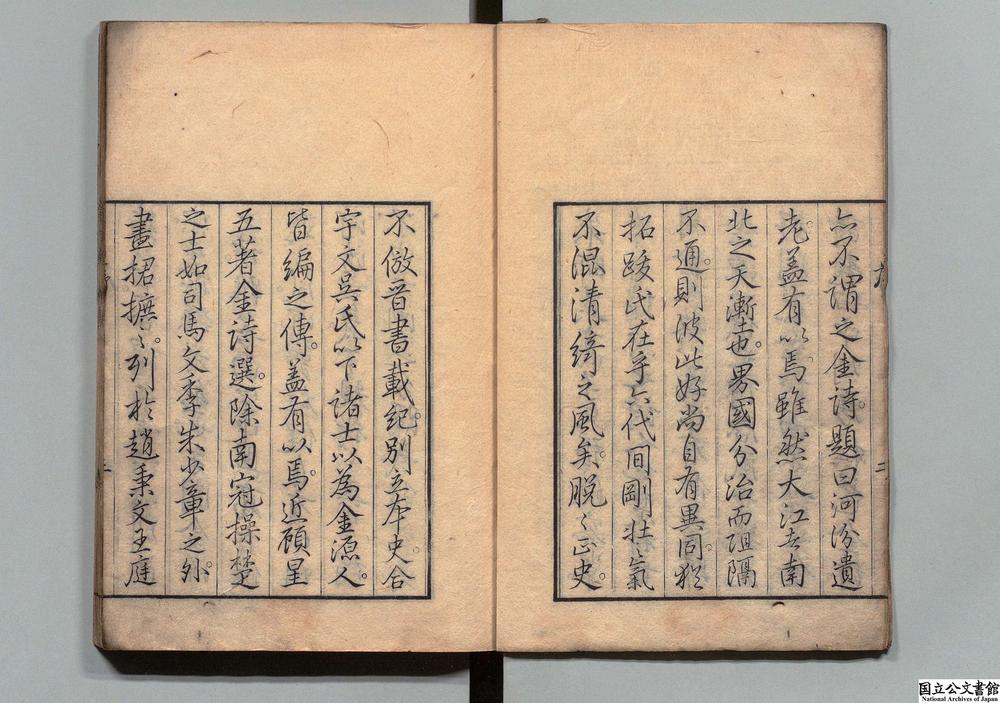 亦不謂之金詩。題曰河汾遺
老。蓋有以焉。雖然大江者南
北之天漸也。畧國分治而阻隔
不通。則彼此好尚自有異同。猶
拓跋氏在乎六代间剛壮々氣
不混清綺之風矣。脱々正史。
不倣晉書載紀。別立本史。合
宇文吴氏以下諸士以為金源人。
皆編之傳。蓋有以焉。近顧星
五著金詩選。除南冠操楚
之士如司馬文季朱少章之外。
畫捃摭々。列於趙秉文王庭
国立公文書館
National Archives of Japan